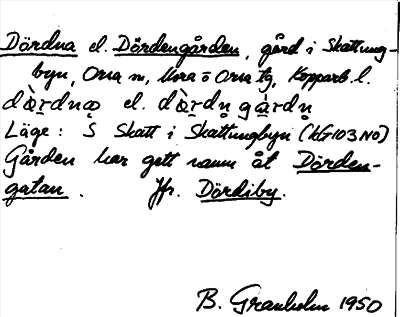 Dördna el. Dördengården, gård i Skattung-
byn, Orsa sn, Mora o Orsa tg, Kopparb. l.
dœ̀rdnœ el. dœ̀rdn gàrdn
Läge: S Skatt i Skattungbyn (kG103NO)
Gården har gett namn åt Dörden-
gatan. Jfr. Dördiby.
B. Granholm 1950